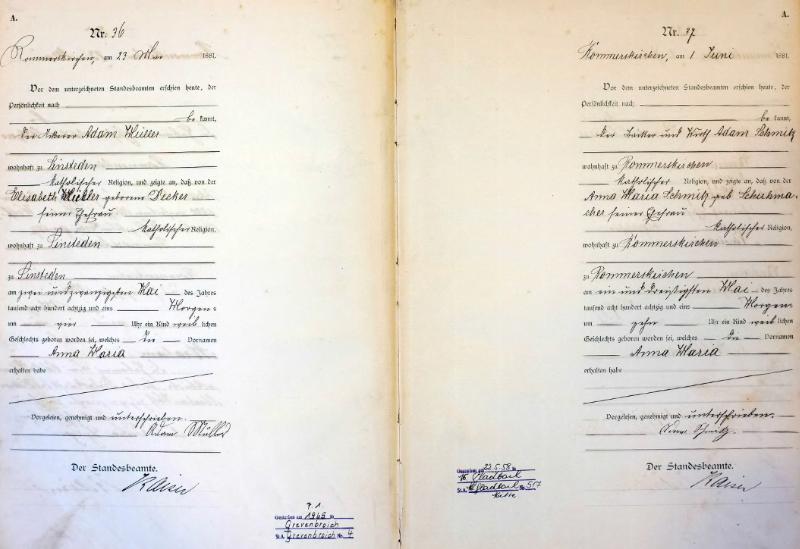 A.
Nr. 36
Rommerskirchen, am 23 Mai 1881.
Vor dem unterzeichneten Standesbeamten erschien heute, der
Persönlichkeit nach
be kannt,
der Ackerer Adam Müller
wohnhaft zu Sinsteden
katholischer Religion, und zeigte an, daß von der
Elisabeth Müller geborene Decker
seiner Ehefrau
katholischer Religion,
wohnhaft zu Sinsteden
zu Sinsteden
am zwei und zwanzigsten Mai des Jahres
tausend acht hundert achtzig und eins Morgens
um Uhr ein Kind weib lichen
Geschlechts geboren worden sei, welches die Vornamen
Anna Maria
erhalten habe
Vorgelesen, genehmigt und unterschrieben.
Adam Müller
Der Standesbeamte.
Kaiser
7.1
Gestorben am 1965 in
Grevenbroich
St.A. Grevenbroich Nr. 4
A.
Nr. 37
Rommerskirchen, am 1 Juni 1881.
Vor dem unterzeichneten Standesbeamten erschien heute, der
Persönlichkeit nach
be kannt,
der Bäcker und Wirth Adam Schmitz
wohnhaft zu Rommerskirchen
katholischer Religion, und zeigte an, daß von der
Anna Maria Schmitz geb
seiner Ehefrau
katholischer Religion,
wohnhaft zu Rommerskirchen
zu Rommerskirchen
am ein und dreißigsten Mai des Jahres
tausend acht hundert achtzig und eins Morgens
um zehn Uhr ein Kind weib lichen
Geschlechts geboren worden sei, welches die Vornamen
Anna Maria
erhalten habe
Vorgelesen, genehmigt und unterschrieben.
Adam Schmitz.
Der Standesbeamte.
Kaiser
Gestorben am 23.5.58 in
Gladbach
St.A. Gladbach Nr. 517